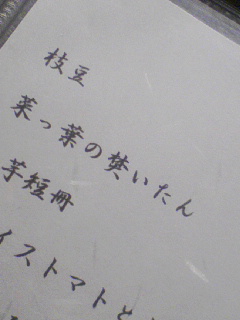 枝豆
菜っ葉の焚いたん
芋短冊
イストマトと